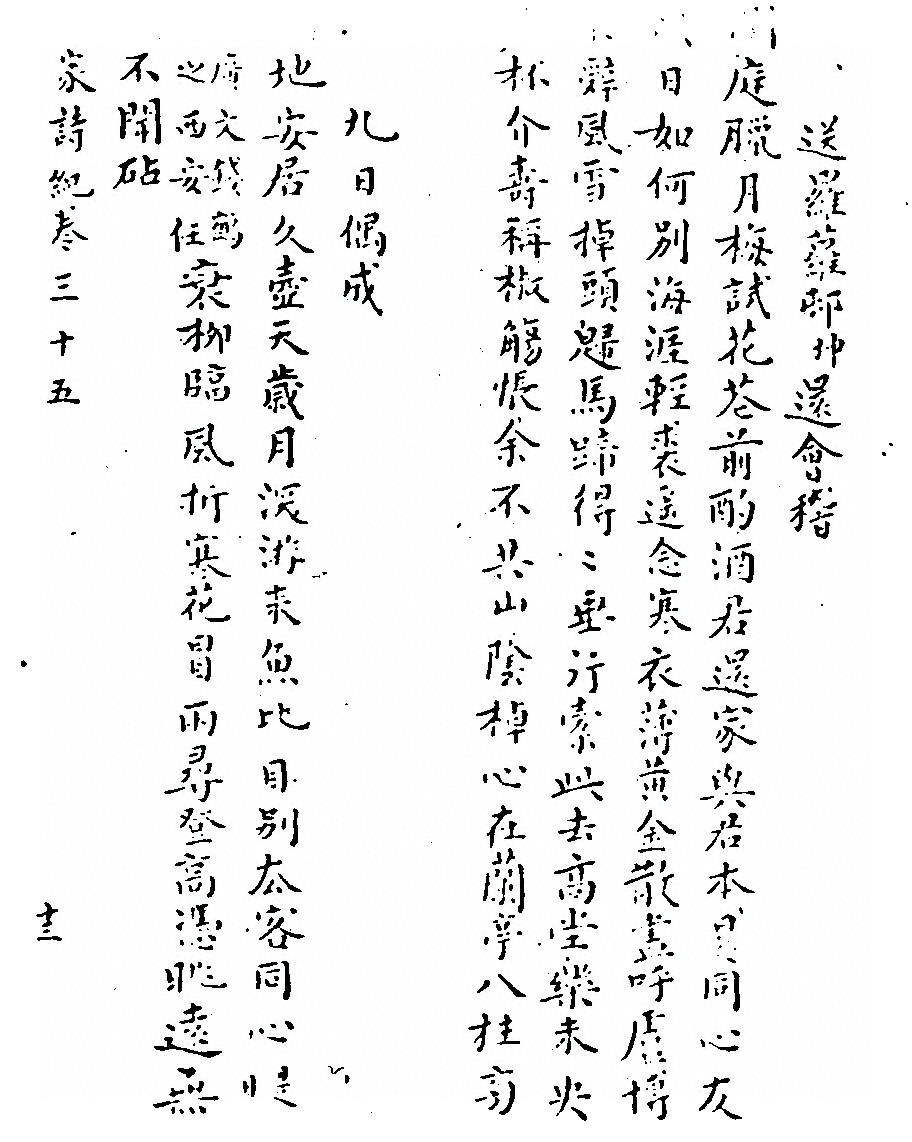 送羅蘿邨仲還會稽
庭臘月梅試花花前酌酒君還家與君本是同心友
日如何別海涯輕裘遥念寒衣薄黄金散盡呼盧博
辭風雪掉頭歸馬蹄得〻無行索此去高堂樂未央
杯介壽稱椒觴悵余不共山陰棹心在蘭亭八柱旁
九日偶成
地安居久壺天歲月深游來魚比目別去客同心時
廣文錢鶴
之西安任
衰柳臨風折寒花冒雨尋登高憑眺遠無
不聞砧
家詩紀卷三十五
十三